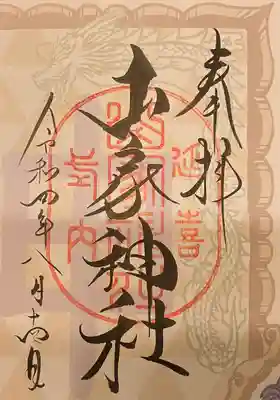 奉拝
延喜
式内
高家神社
令和四年八月十四日